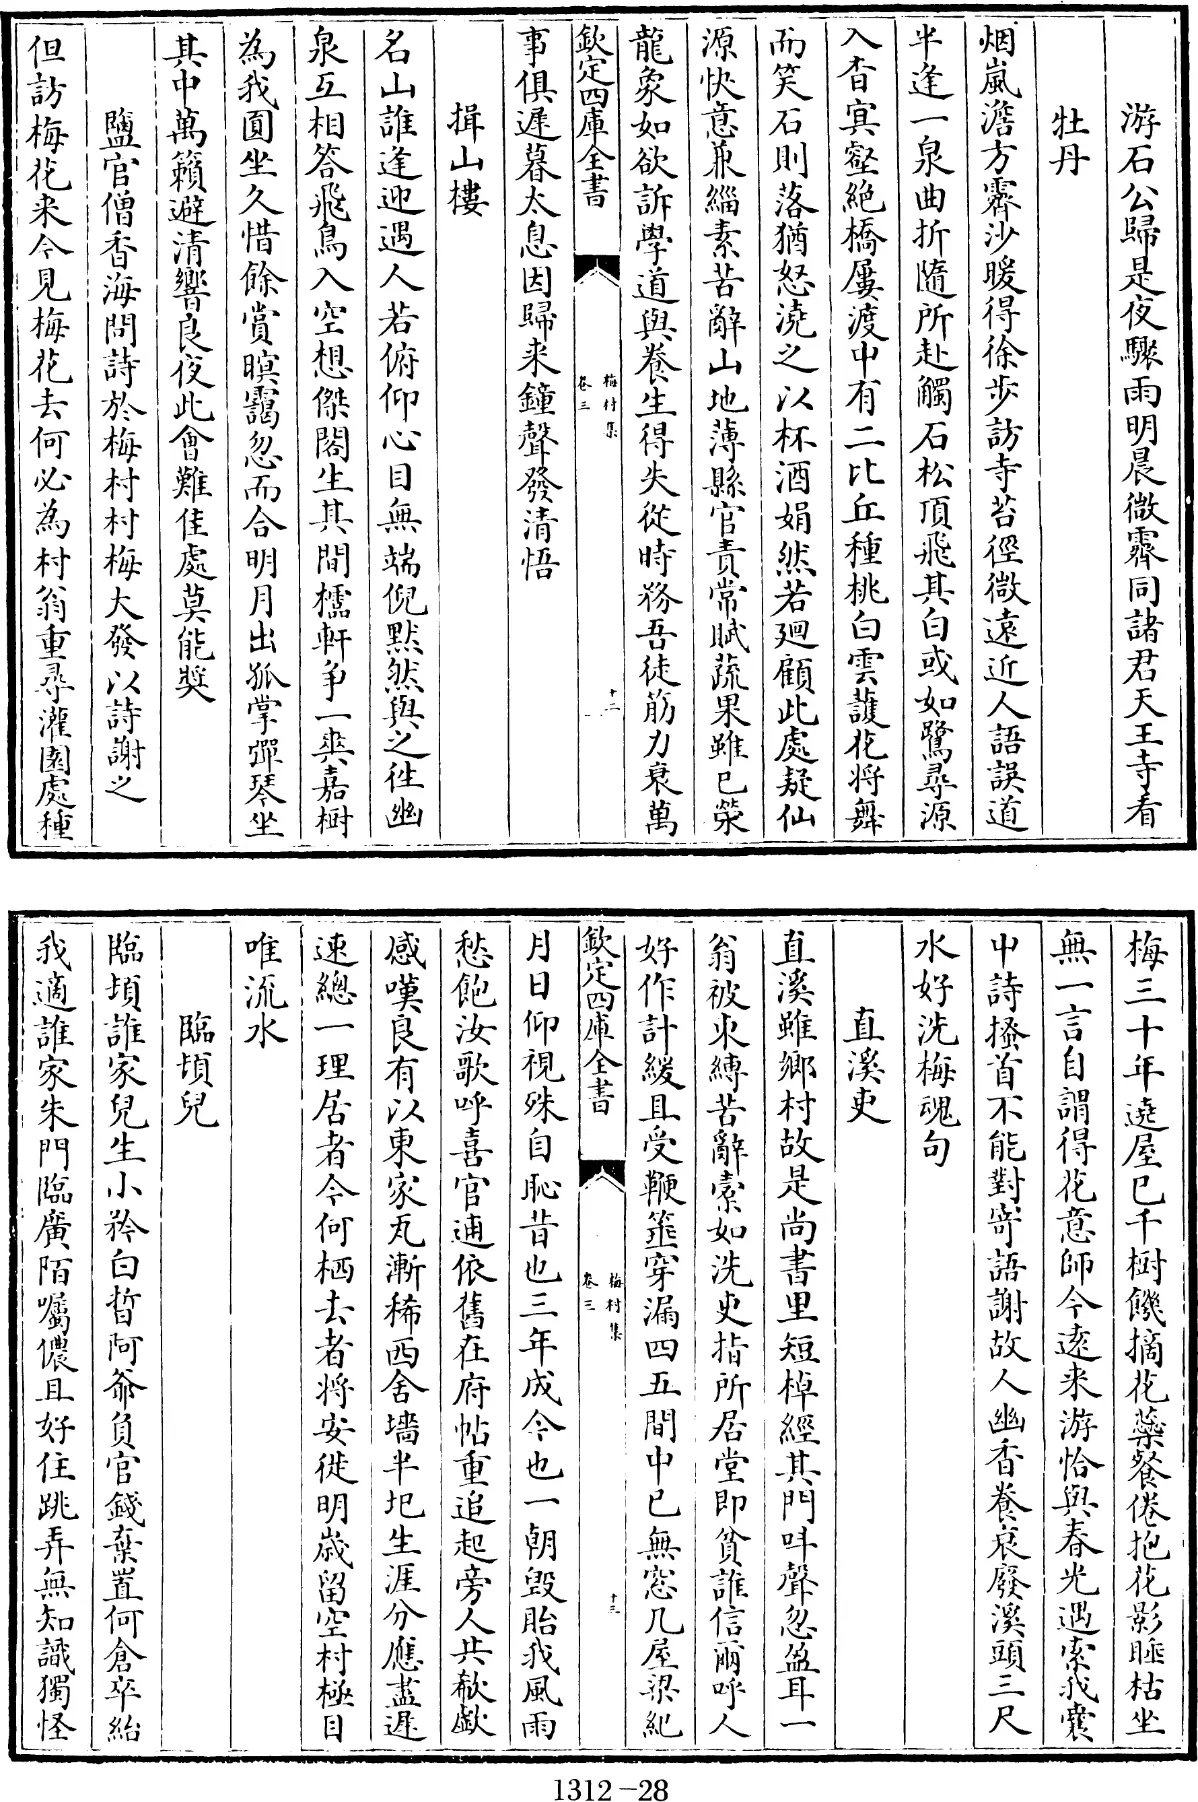 游石公歸是夜驟雨明晨微霽同諸君天王寺看
牡丹
烟嵐澹方霽沙暖得徐步訪寺苔徑微遠近人語誤道
半逢一泉曲折隨所赴觸石松頂飛其白或如鷺尋源
入杳冥壑絕橋屢渡中有二比丘種桃白雲護花將舞
而笑石則落猶怒澆之以杯酒娟然若廻顧此處疑仙
源快意兼緇素苦辭山地薄縣官責常賦蔬果雖已榮
龍象如欲訴學道與養生得失從時務吾徒筋力衰萬
欽定四庫全書
梅村集
卷三
十二
事俱遲暮太息因歸来鐘聲發清悟
揖山樓
名山誰逢迎遇人若俯仰心目無端倪默然與之徃幽
泉互相答飛鳥入空想傑閣生其間櫺軒争一爽嘉樹
為我圓坐久惜餘賞暝靄忽而合明月出孤掌彈琴坐
其中萬籟避清響良夜此會難佳處莫能獎
鹽官僧香海問詩於梅村村梅大發以詩謝之
但訪梅花来今見梅花去何必為村翁重尋灌園處種
梅三十年遶屋已千樹饑摘花蘂餐倦抱花影睡枯坐
無一言自謂得花意師今遠来游恰與春光遇索我囊
中詩搔首不能對寄語謝故人幽香養衰廢溪頭三尺
水好洗梅魂句
直溪吏
直溪雖鄉村故是尚書里短棹經其門呌聲忽盈耳一
翁被束縛苦辭橐如洗吏指所居堂即貧誰信爾呼人
好作計緩且受鞭箠穿漏四五間中已無窓几屋梁紀
欽定四庫全書
梅村集
卷三
十三
月日仰視殊自恥昔也三年成今也一朝毀貽我風雨
愁飽汝歌呼喜官逋依舊在府帖重追起旁人共欷歔
感嘆良有以東家瓦漸稀西舍墻半圯生涯分應盡遲
速總一理居者今何栖去者將安徙明歲留空村極目
唯流水
臨頓兒
臨頓誰家兒生小矜白晳阿爺負官錢棄置何倉卒紿
我適誰家朱門臨廣陌囑儂且好住跳弄無知識獨怪
1312-28